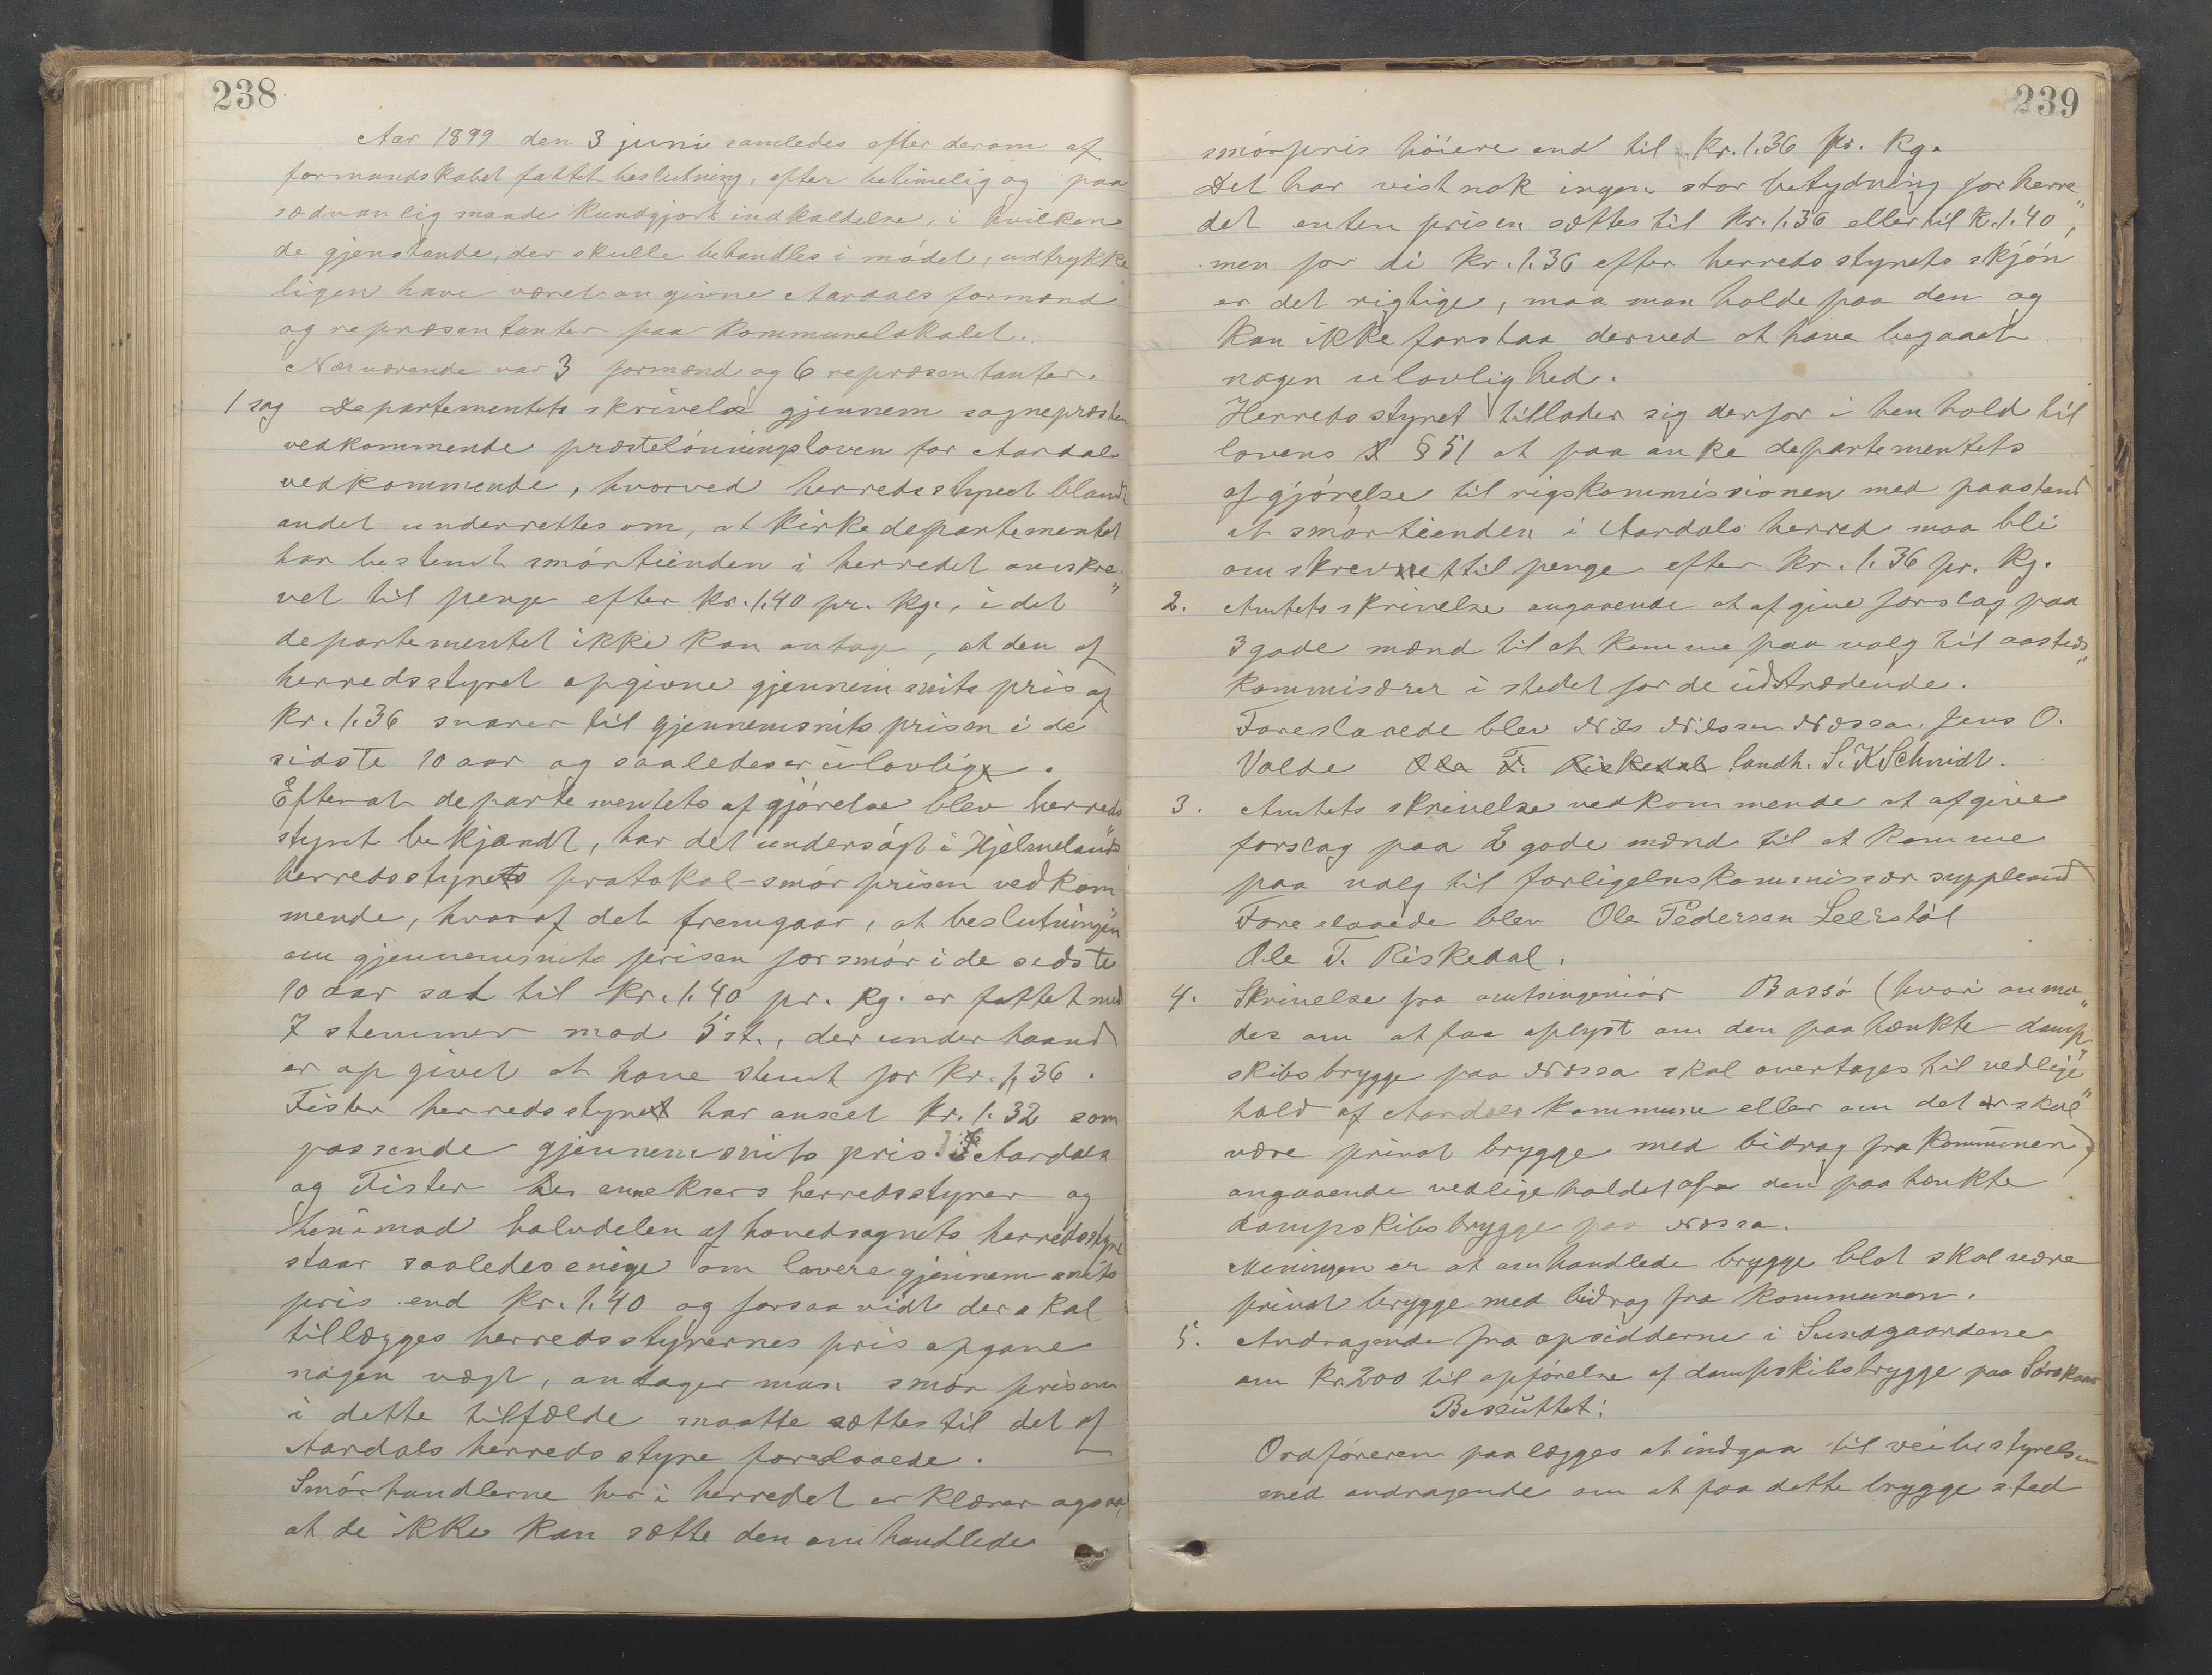 238
Aar 1899 den 3 juni samledes efter derom af
formandskabet fattet beslutning, efter betimelig og paa
sædvanlig maade kundgjort indkaldelse, i hvilken
de gjenstande, der skulle behandles i mødet, udtrykke
ligen have været angivne Aardals formænd
og repræsentanter paa kommunelokalet.
Nærværende var 3 formænd og 6 repræsentanter.
1 sag Departementets skrivelse gjennem sognepræsten
vedkommende præstelønningsloven for Aardals
vedkommende, hvorved herredsstyret blandt
andet underrettes om, at Kirkedepartementet
har bestemt smørtienden i herredet omskre„
vet til penge efter kr. 1.40 pr. kg., i det
departementet ikke kan antage, at den af
herredsstyret opgivne gjennemsnits pris af
kr. 1.36 svarer til gjennemsnitsprisen i de
sidste 10 aar og saaledes er ulovlig.
Efterat departementets afgjørelse blev herreds„
styret bekjendt, har det undersøgt i Hjelmelands
herredsstyrets protokol smørprisen vedkom„
mende, hvoraf det fremgaar, at beslutningen
om gjennemsnits prisen for smør i de sidste
10 aar sat til kr. 1.40 pr. kg. er fattet med
7 stemmer mod 5 st., der underhaand
er opgivet at have stemt for kr. 1,36.
Fister herredsstyret har anseet kr. 1.32 som
passende gjennemsnits pris. Aardals
og Fister anneksers herredsstyrer og
henimod halvdelen af hovedsognets herredsstyre
staar saaledes enige om lavere gjennemsnits
pris end kr. 1.40 og forsaavidt der skal
tillægges herredsstyrernes pris opgave
nogen vægt, antager man smør prisen
i dette tilfælde maatte sættes til det af
Aardals herredsstyre foreslaaede.
Smørhandlerne her i herredet erklærer ogsaa,
at de ikke kan sætte den omhandlede
239
smørpris høiere end til kr. 1.36 pr. kg.
Det har vistnok ingen stor betydning for herre„
det enten prisen sættes til kr. 1.36 eller til k. 1.40,
men for di kr. 1.36 efter herredsstyrets skjøn
er det rigtige, maa man holde paa den og
kan ikke forstaa derved at have begaaet
nogen ulovlighed.
Herredsstyret tillader sig derfor i henhold til
lovens § 51 at paa anke departementets
afgjørelse til rigskommissionen med paastand
at smørtienden i Aardals herred maa bli
omskrevet til penge efter kr. 1.36 pr. kg.
2. Amtets skrivelse angaaende at afgive forslag paa
3 gode mænd til at komme paa valg til aasteds„
kommisærer i stedet for de udtrædende.
Foreslaaede blev Nils Nilssen Nessa, Jens O.
Valde Ola T. Riskedal landh. S. K Schmidt.
3. Amtets skrivelse vedkommende at afgive
forslag paa 2 gode mænd til at komme
paa valg til forligelseskommissær suppleand
Foreslaaede blev Ole Pedersen Leerstøl
Ole T. Riskedal.
4. Skrivelse fra amtsingeniør Bassø (hvori anmo„
des om at faa oplyst om den paatænkte damp„
skibsbrygge paa Nessa skal overtages til vedlige„
hold af Aardals kommune eller om det skal
være privat brygge med bidrag fra kommunen)
angaaende vedligeholdet af den paatænkte
dampskibsbrygge paa Nessa.
Meningen er at omhandlede brygge blot skal være
privat brygge med bidrag fra kommunen.
5. Andragende fra opsidderne i Sundgaardene
om kr 200 til opførelse af dampskibsbrygge paa
Besluttet:
Ordføreren paalægges at indgaa til veibestyrelsen
med andragende om at faa dette bryggested